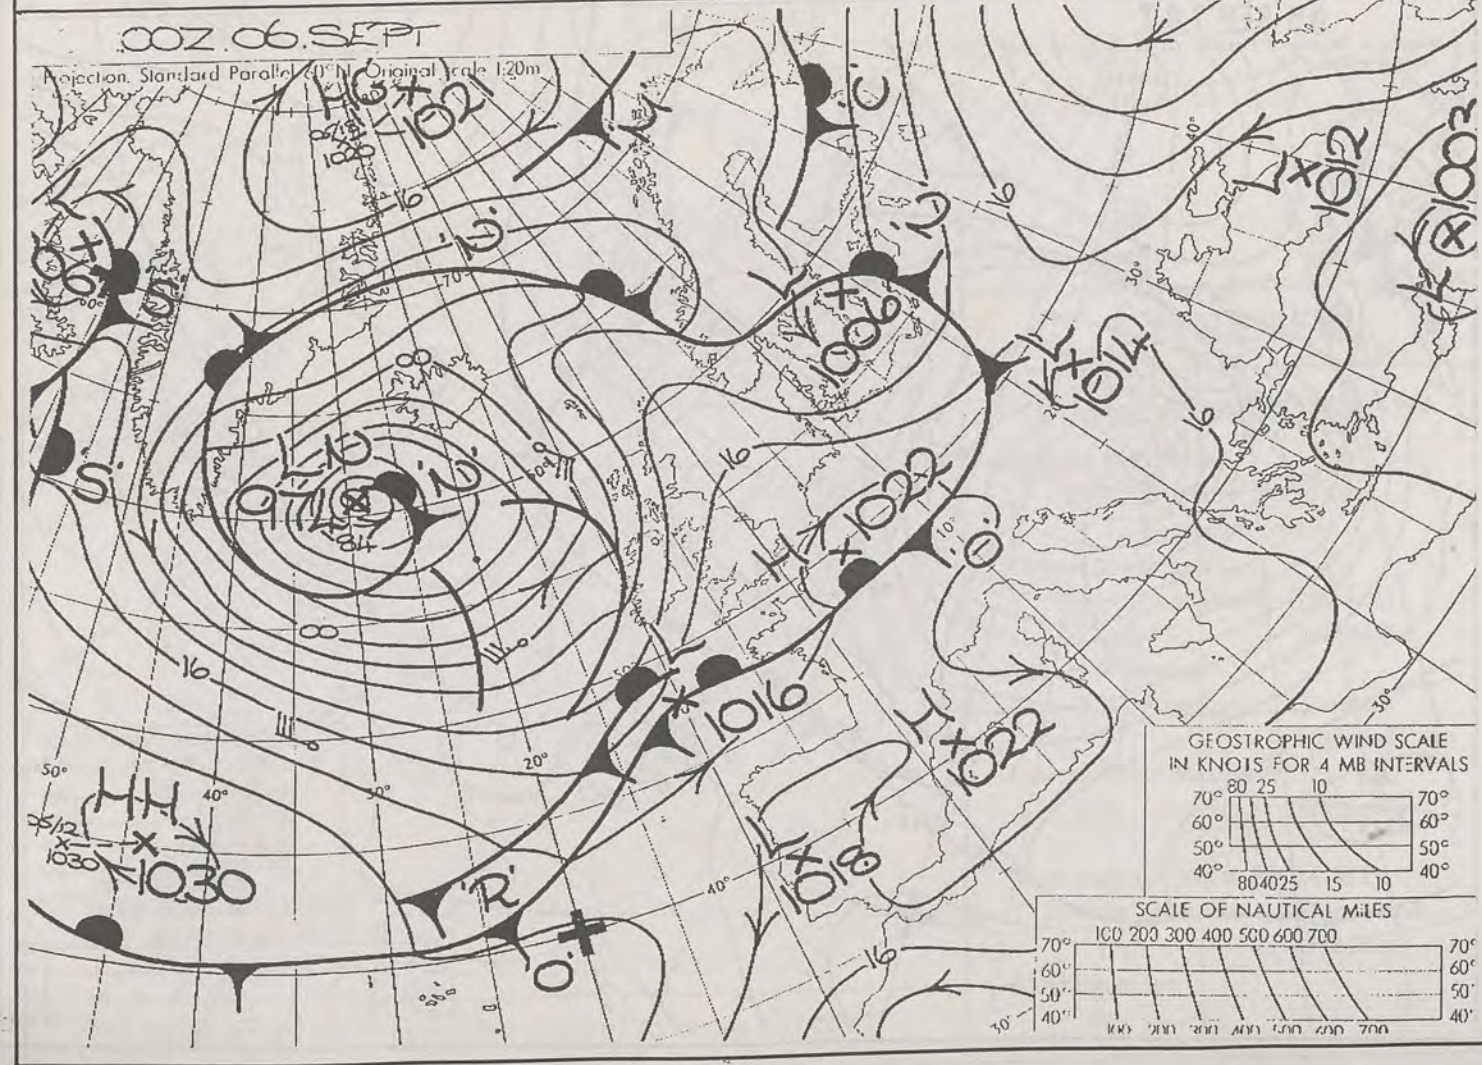 00Z.06.SEPT
Projection. Standard Parallel 60°N. Original Scale 1:20m
HG
1021
16
'C'
L
1012
L
1002
16
'N'
70°
L
L
1006
L
1014
16
8
LN
'N'
984
16
H
1022
'O'
10°
'S'
8
16
L
1016
H
1022
20°
30°
40°
50°
H H
1030
1030
'R'
'O'
L
1018
40°
16
30°
30°
40°
30°
GEOSTROPHIC WIND SCALE
IN KNOTS FOR 4 MB INTERVALS
80 25 10
70° 70°
60° 60°
50° 50°
40° 40°
80 40 25 15 10
SCALE OF NAUTICAL MILES
100 200 300 400 500 600 700
70° 70°
60° 60°
50° 50°
40° 40°
100 200 300 400 500 600 700